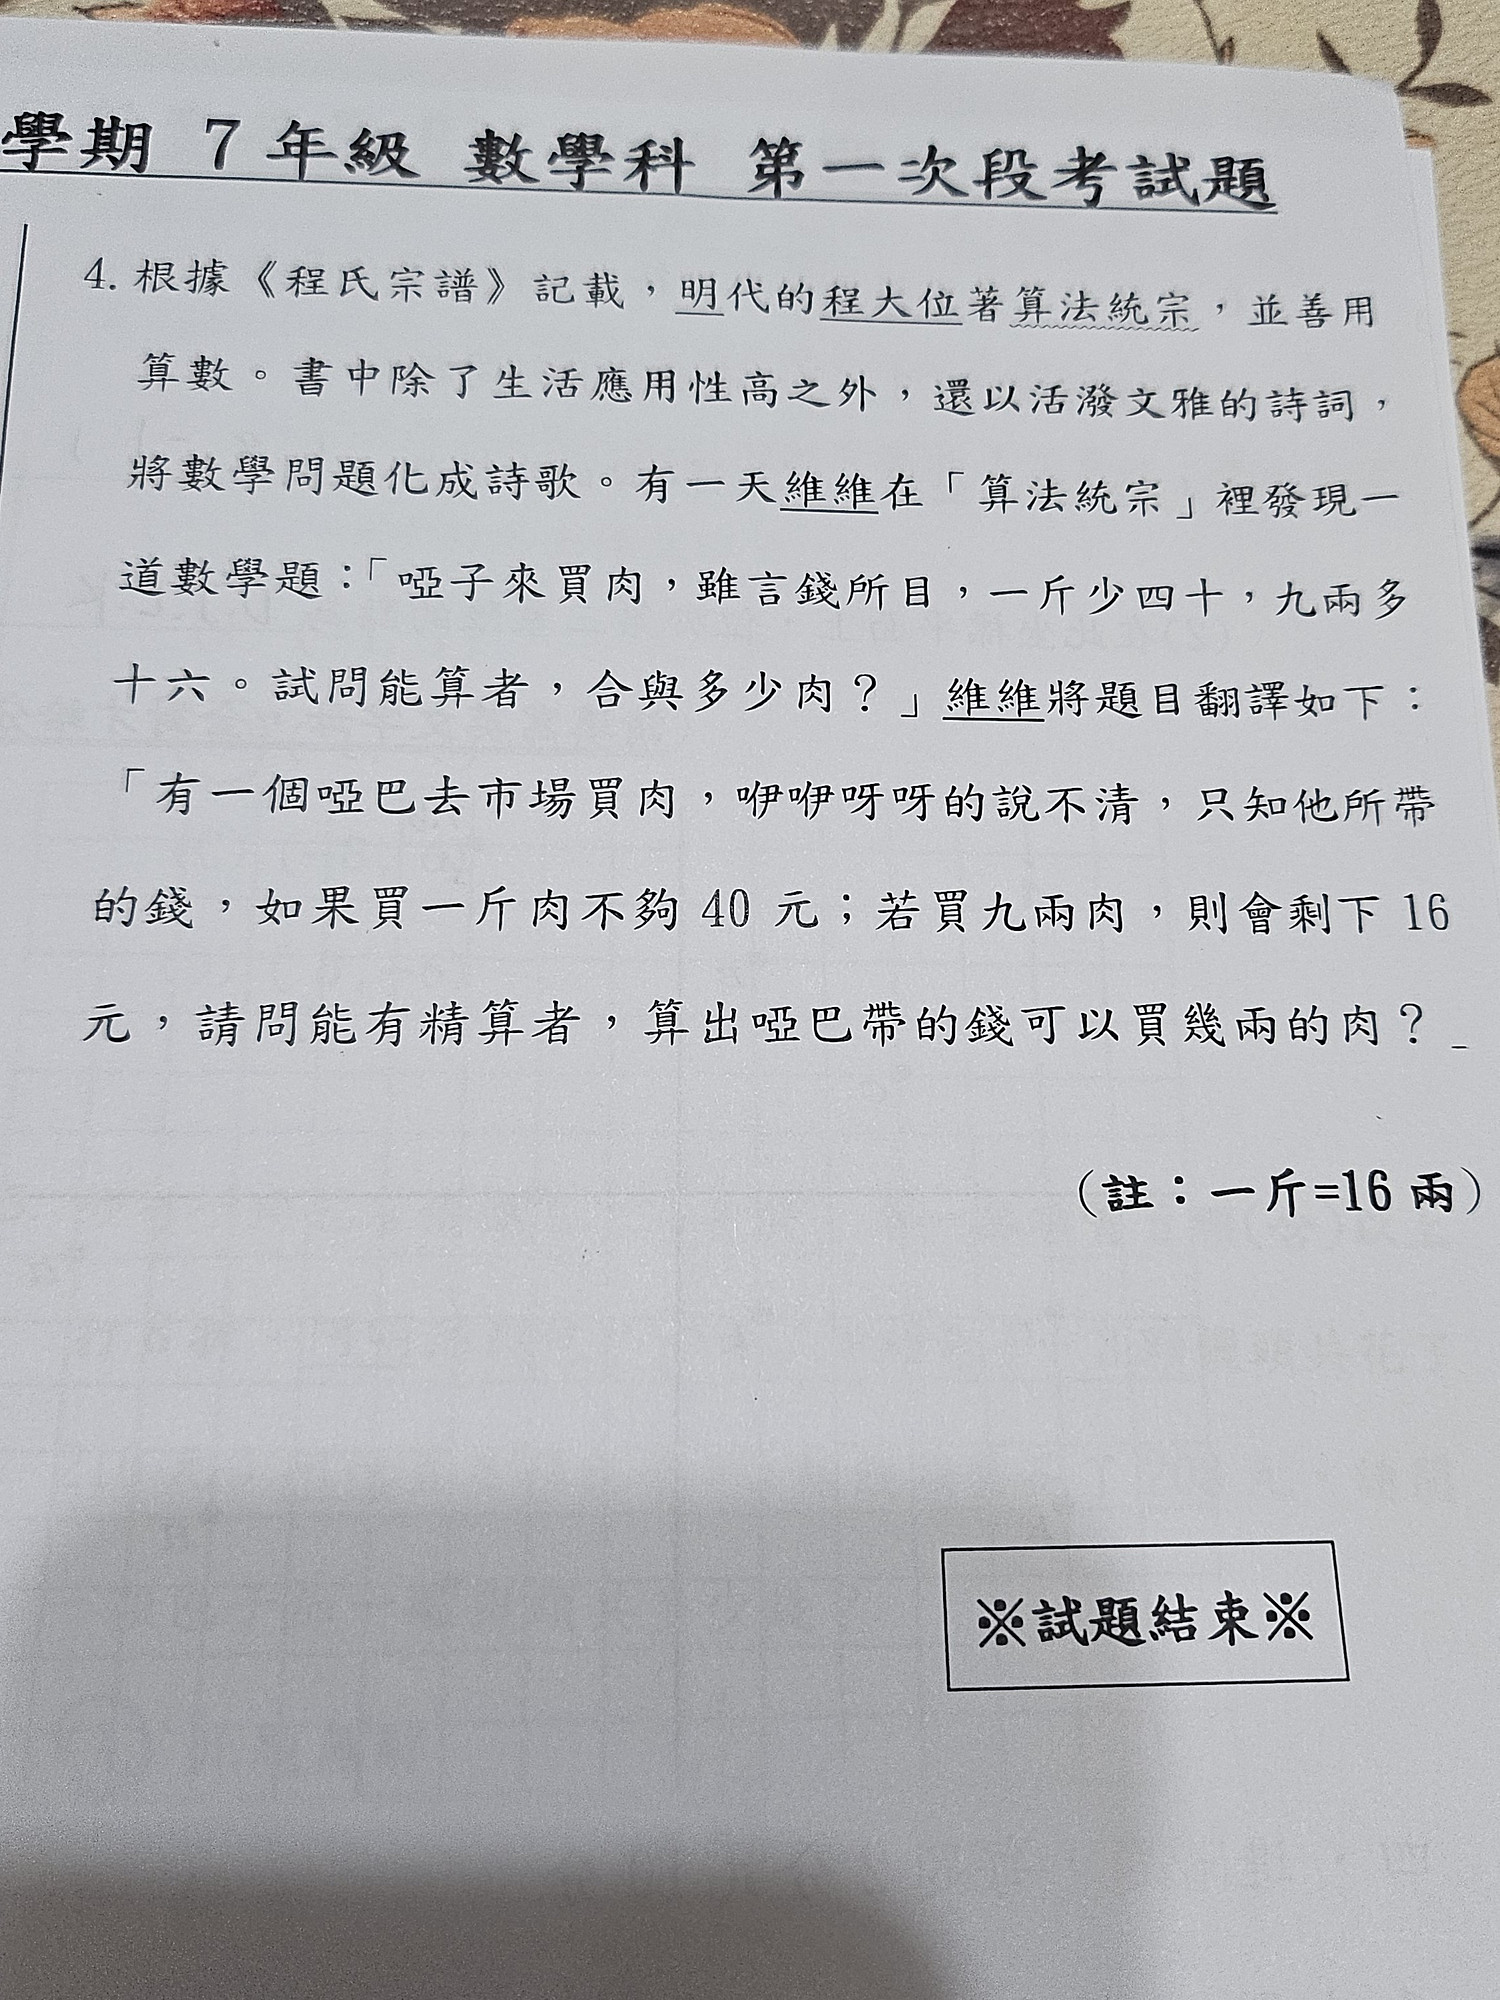 學期 7 年級 數學科 第一次段考試題
4. 根據《程氏宗譜》記載，明代的程大位著算法統宗，並善用
算數。書中除了生活應用性高之外，還以活潑文雅的詩詞，
將數學問題化成詩歌。有一天維維在「算法統宗」裡發現一
道數學題：「啞子來買肉，雖言錢所目，一斤少四十，九兩多
十六。試問能算者，合與多少肉？」維維將題目翻譯如下：
「有一個啞巴去市場買肉，咿咿呀呀的說不清，只知他所帶
的錢，如果買一斤肉不夠 40 元；若買九兩肉，則會剩下 16
元，請問能有精算者，算出啞巴帶的錢可以買幾兩的肉？_
（註：一斤=16 兩）
※試題結束※